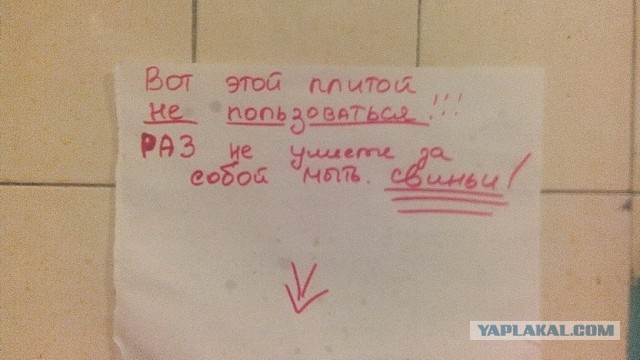 Вот этой плитой
не пользоваться!!!
РАЗ не умеете за
собой мыть. свиньи!
YAPLAKAL.COM